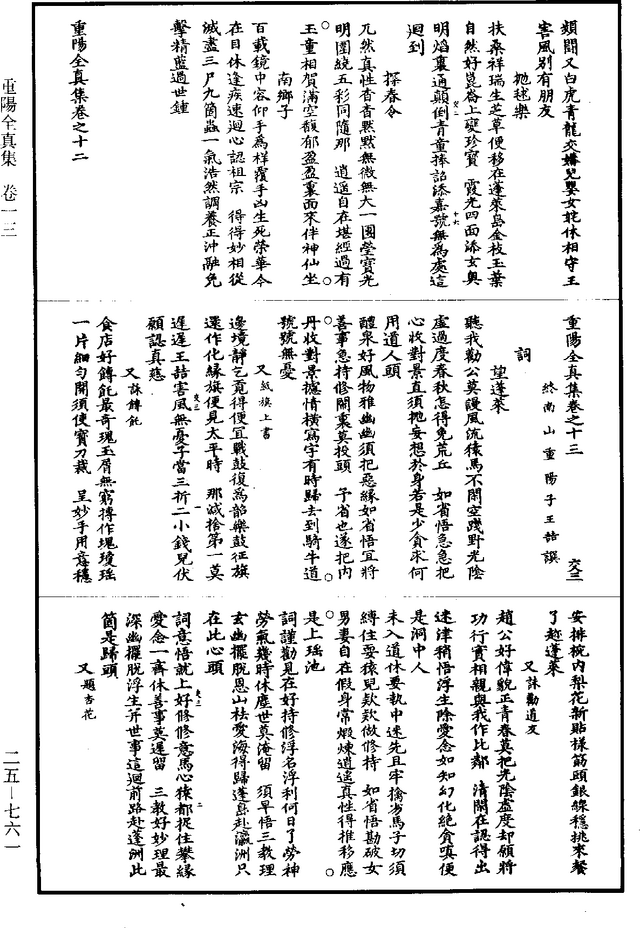 類聞又白虎青龍交媾兒嬰女姹休相守王
害風別有朋友
抛毬樂
扶桑祥瑞生芝草便移在蓬萊島金枝玉葉
自然好崑崙上變珍寶　霞光四面添女奧
明焰裏通顛倒青童捧詔添嘉號無為處這
迴到
探春令
兀然真性杳杳黙黙無微無大一團瑩寶光
明圍繞五彩同隨那　逍遥自在堪經過有
玉童相賀滿空馥郁盈盈裏面來伴神仙坐
南鄉子
百載鏡中容仰手為樣覆手凶生死榮華今
在目休逢疾速迴心認祖宗　得得妙相從
滅盡三尸九箇蟲一氣浩然調養正沖融免
擊精藍過世鍾
重陽全真集卷之十二
重陽全真集卷之十三　交三
終南山重陽子王喆　撰
詞
望蓬萊
聽我勸公莫謾風流猿馬不閑空踐對光陰
虛過度春秋怎得免荒丘　如省悟急急把
心收對景直須抛妄想於身若是少貪求何
用道人頭
醴泉好風物雅幽幽須把惡緣如省悟宜將
善事急持修開裏莫投頭　予省也遂把内
丹收對景攄情橫寫字有時歸去到騎牛道
號號無憂
又紙旗上書
邊境靜乞覓得便宜戰鼓復為韶樂鼓征旗
還作化緣旗便見太平時　那減捨第一莫
遲遲王喆害風無憂子當三折二小錢兒伏
願認真慈
又詠餺飥
食店好餺飥最奇瑰玉屑無窮摶作塊瓊瑶
一片細勻開須使寶刀裁　呈妙手用意穩
安排椀内梨花新貼樣筯頭銀線穩挑來餐
了趂蓬萊
又詠勸道友
趙公好偉貌正青春莫把光陰虛度却願將
功行實相親與我作比鄰　清閑在認得出
迷津稍悟浮生除愛念如知幻化絶貪嗔便
是洞中人
未入道休要執中迷先且牢擒劣馬子切須
縛住耍猿兒欵欵做修持　如省悟勘破女
男妻自在假身常煅煉逍遥真性得推移應
是上瑶池
詞謹勸見在好持修浮名浮利何日了勞神
勞氣幾時休塵世莫淹留　須早悟三教理
玄幽擺脫恩山袪愛海得歸蓬島赴瀛洲只
在此心頭
詞意悟就上好修修意馬心猿都捉住攀緣
愛念一齊休善事莫遲留　三教好妙理最
深幽擺脫浮生并世事這迴前路赴蓬洲此
箇是歸頭
又題杏花
重陽全真集　卷一三
二五—七六一